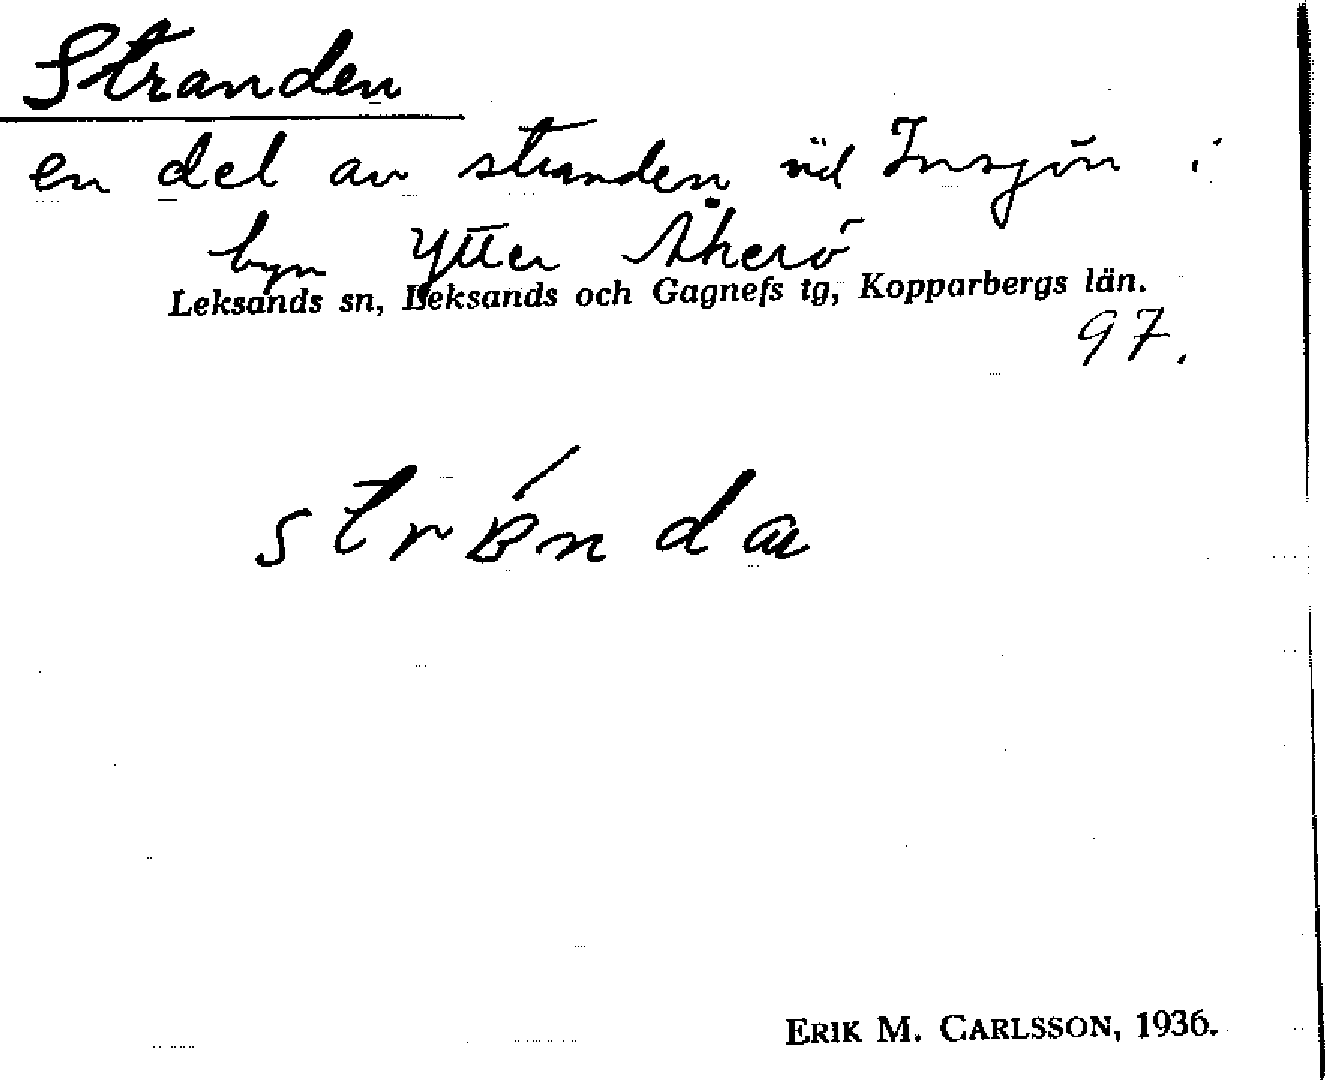 Stranden
en del av stranden vid Insjön i
byn Ytter Åkerö
Leksands sn, Leksands och Gagnefs tg, Kopparbergs län.
97.
ERIK M. CARLSSON, 1936.